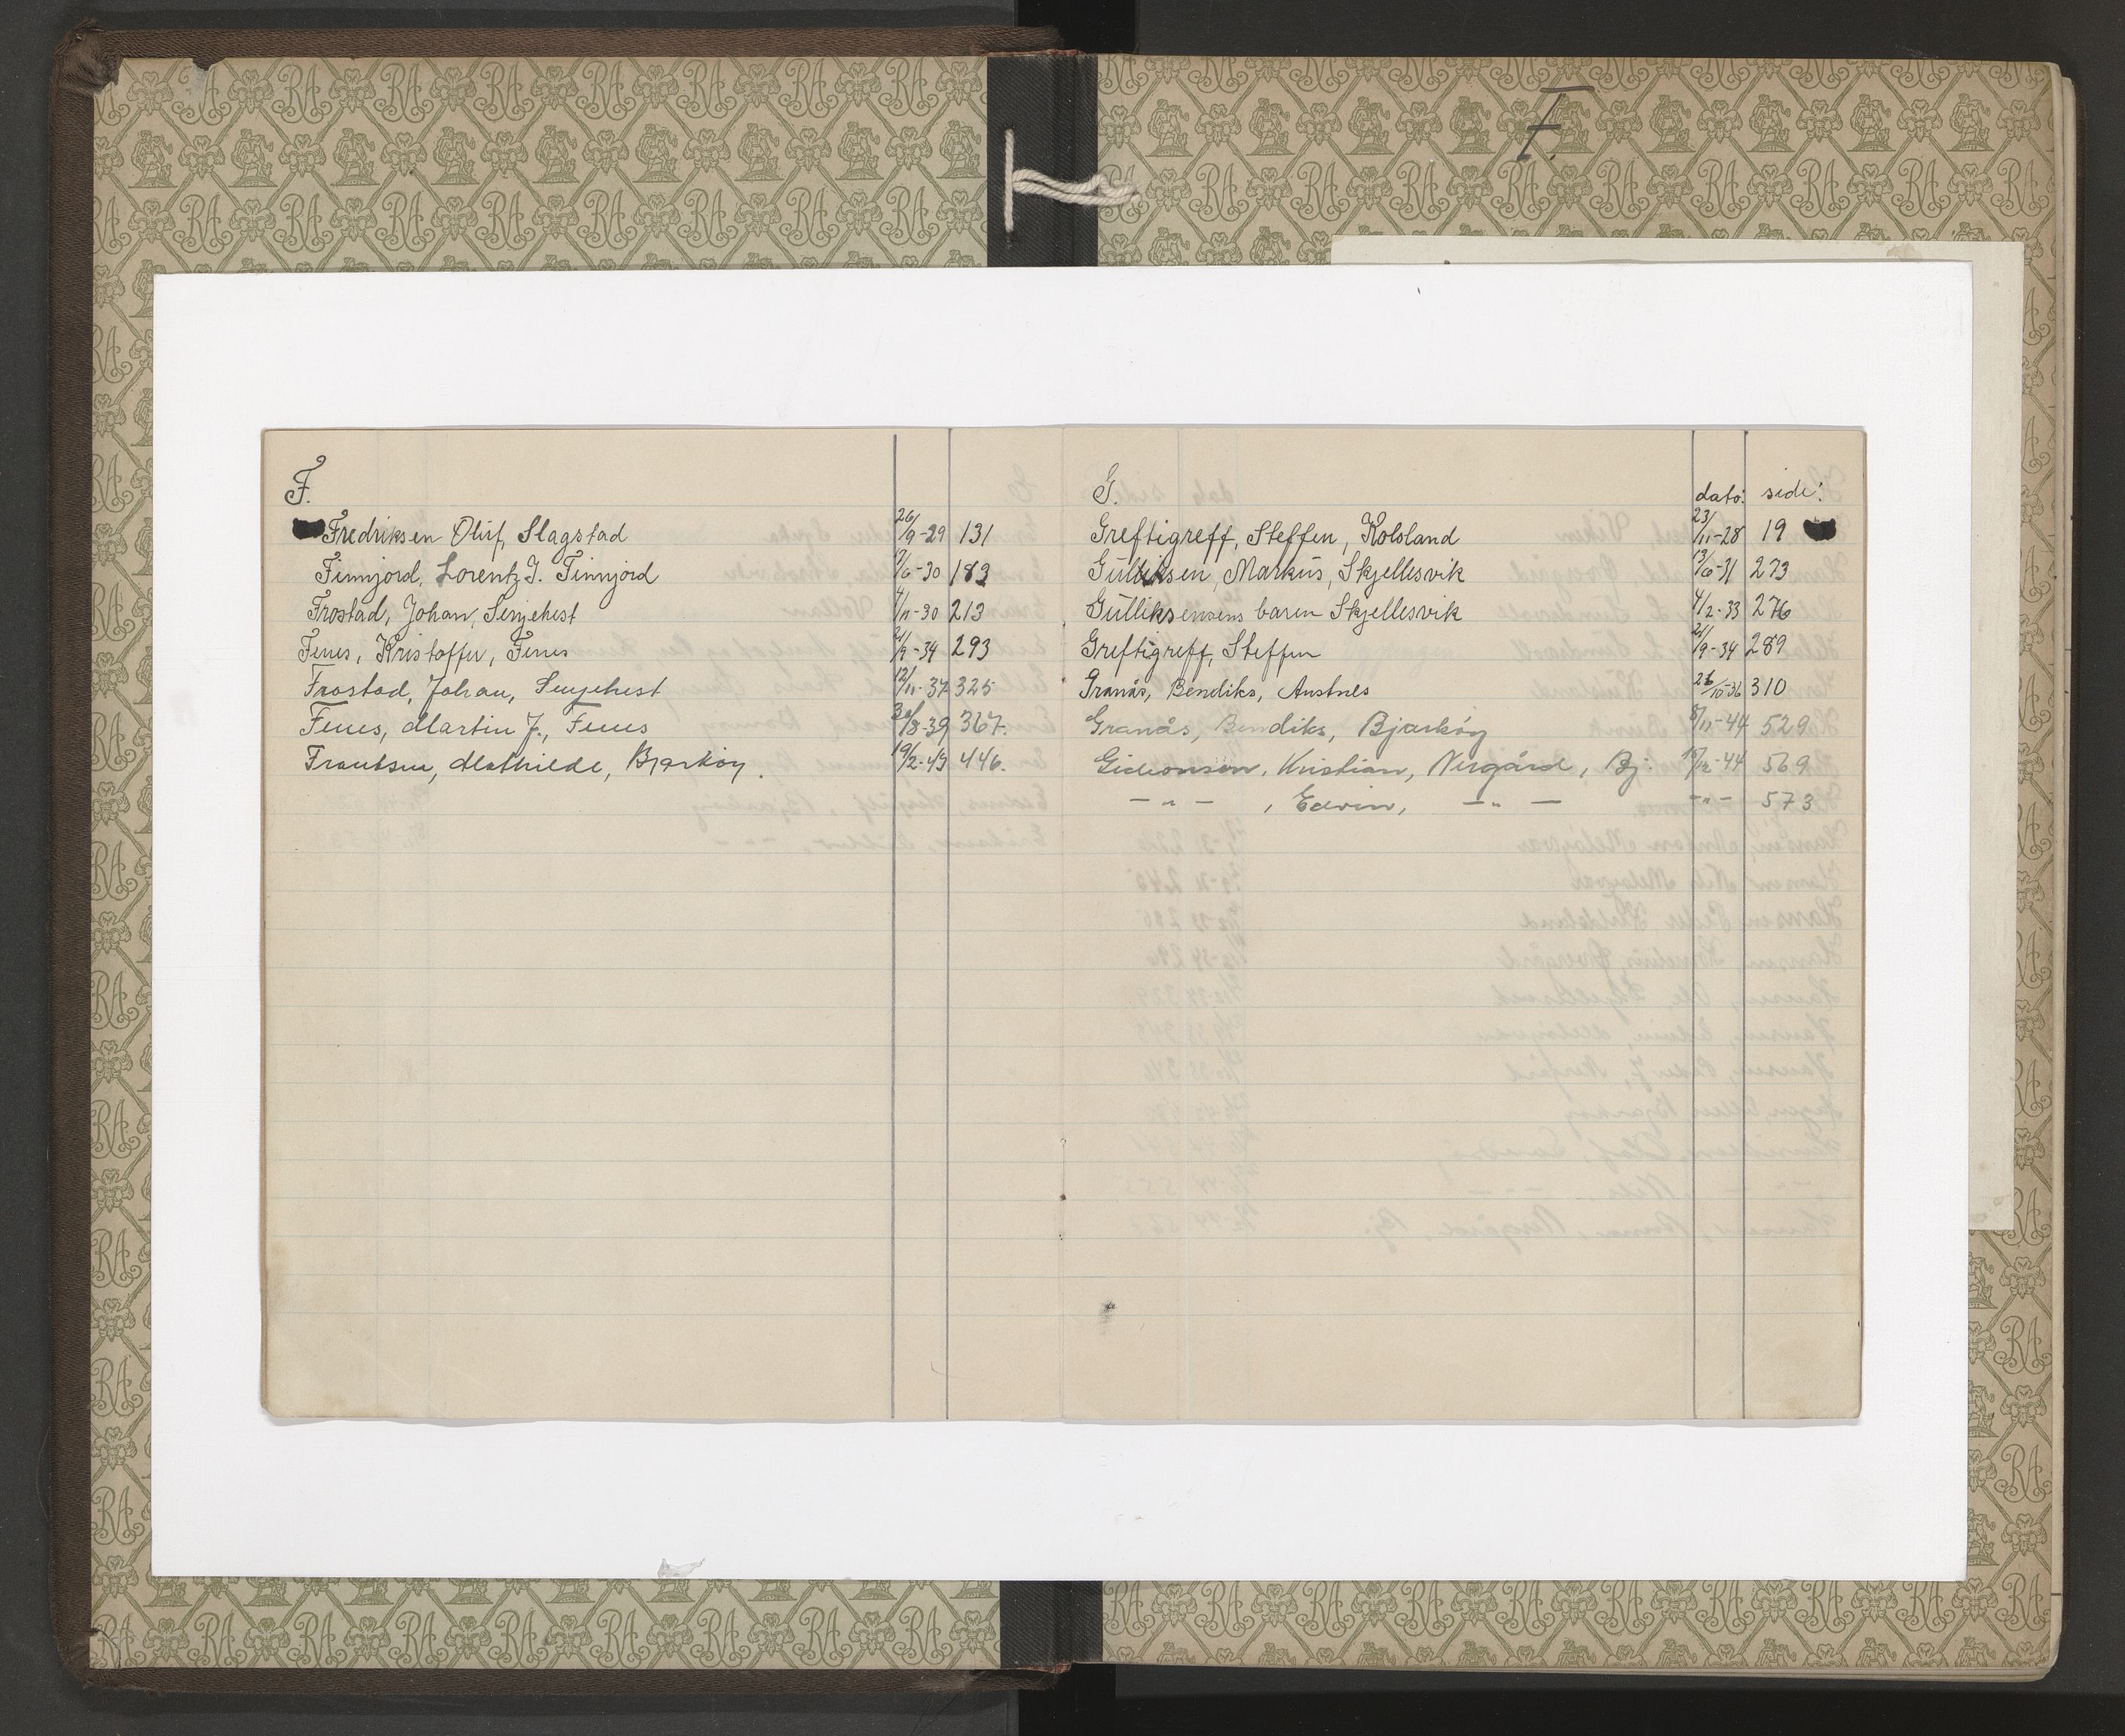 F.
F.
Fredriksen Oluf, Slagstad 26/9-29 131
Finnjord, Lorentz J. Finnjord 17/6-30 183
Frostad, Johan, Senjehest 4/11-30 213
Fenes, Kristoffer, Fenes 21/9-34 293
Frostad, Johan, Senjehest 12/11-37 325
Fenes, Martin J., Fenes 30/8-39 367.
Frantsen, Mathilde, Bjarköy. 19/2-43 446.
G. dato: side:
Greftigreff, Steffen, Kolsland 23/11-28 19
Gulliksen, Markus, Skjellesvik 13/6-31 273
Gulliksensens baren Skjellesvik 4/2-33 276
Greftigreff, Steffen 21/9-34 289
Granås, Bendiks, Austnes 26/10-36 310
Granås, Bendiks, Bjarköy 8/11-44 529
Gideonsen, Kristian, Nergård, Bj. 15/12-44 569
-"- , Edvin, -"- -"- 573